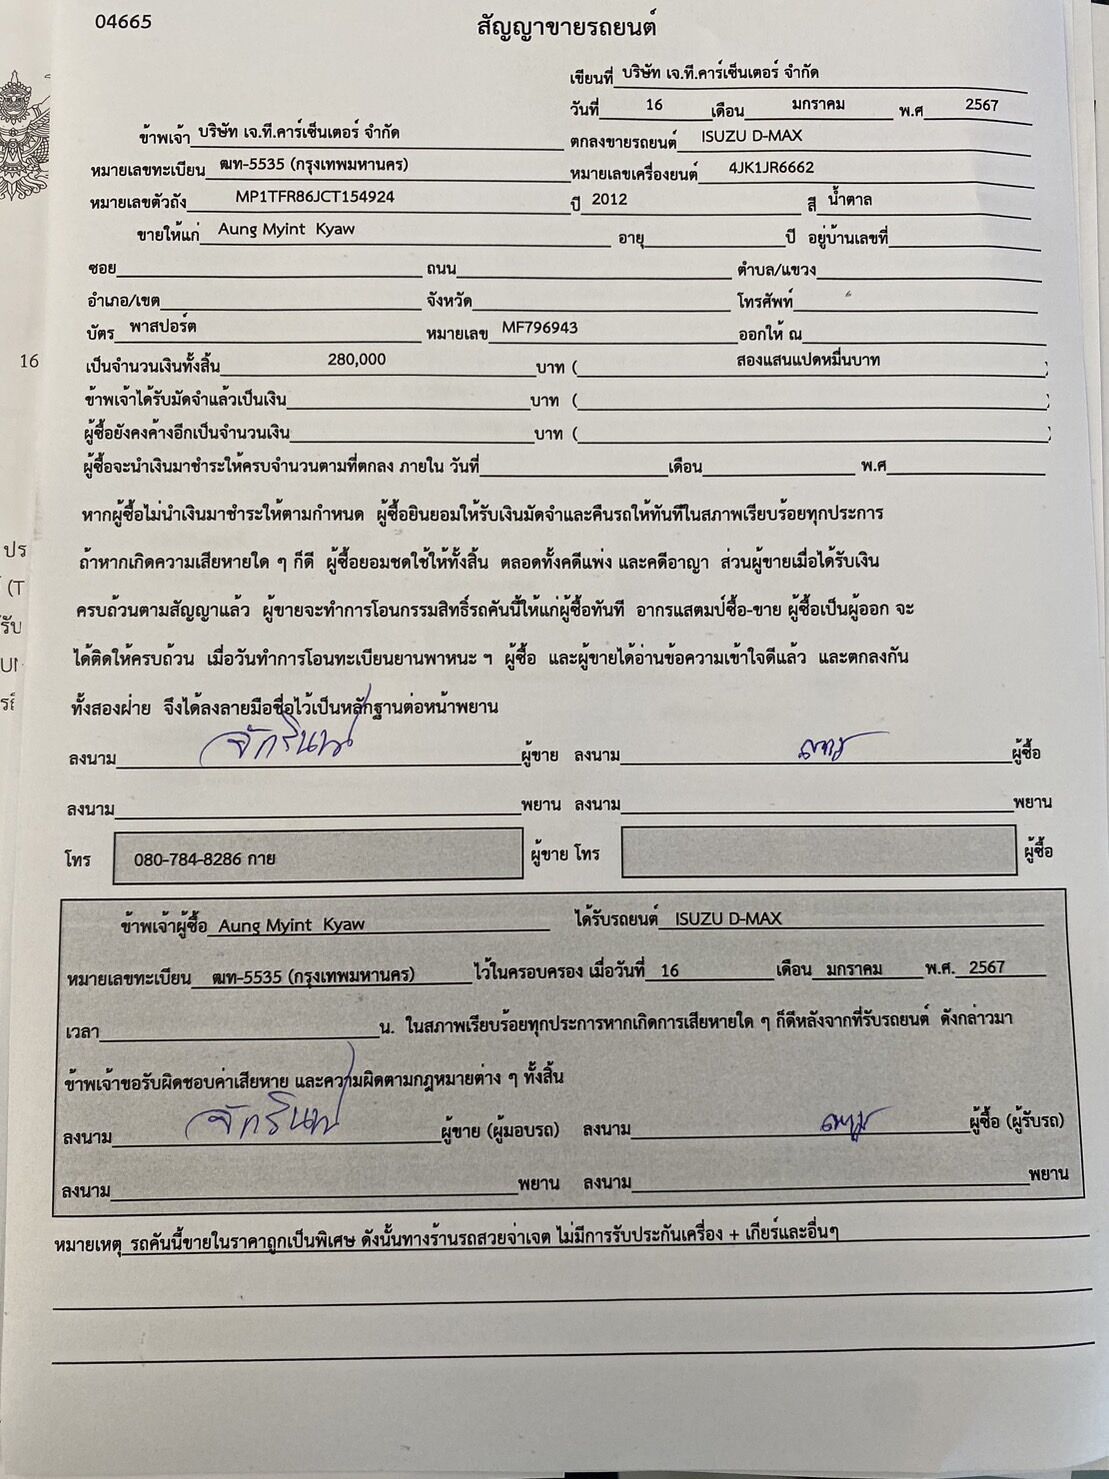 04665
สัญญาขายรถยนต์
เขียนที่ บริษัท เจ.ที.คาร์เซ็นเตอร์ จำกัด
วันที่ 16 เดือน มกราคม พ.ศ 2567
ข้าพเจ้า บริษัท เจ.ที.คาร์เซ็นเตอร์ จำกัด ตกลงขายรถยนต์ ISUZU D-MAX
หมายเลขทะเบียน ฒท-5535 (กรุงเทพมหานคร) หมายเลขเครื่องยนต์ 4JK1JR6662
หมายเลขตัวถัง MP1TFR86JCT154924 ปี 2012 สี น้ำตาล
ขายให้แก่ Aung Myint Kyaw อายุ ปี อยู่บ้านเลขที่
ซอย ถนน ตำบล/แขวง
อำเภอ/เขต จังหวัด โทรศัพท์
บัตร พาสปอร์ต หมายเลข MF796943 ออกให้ ณ
16
เป็นจำนวนเงินทั้งสิ้น 280,000 บาท ( สองแสนแปดหมื่นบาท )
ข้าพเจ้าได้รับมัดจำแล้วเป็นเงิน บาท ( )
ผู้ซื้อยังคงค้างอีกเป็นจำนวนเงิน บาท ( )
ผู้ซื้อจะนำเงินมาชำระให้ครบจำนวนตามที่ตกลง ภายใน วันที่ เดือน พ.ศ
หากผู้ซื้อไม่นำเงินมาชำระให้ตามกำหนด ผู้ซื้อยินยอมให้รับเงินมัดจำและคืนรถให้ทันทีในสภาพเรียบร้อยทุกประการ
ถ้าหากเกิดความเสียหายใด ๆ ก็ดี ผู้ซื้อยอมชดใช้ให้ทั้งสิ้น ตลอดทั้งคดีแพ่ง และคดีอาญา ส่วนผู้ขายเมื่อได้รับเงิน
ครบถ้วนตามสัญญาแล้ว ผู้ขายจะทำการโอนกรรมสิทธิ์รถคันนี้ให้แก่ผู้ซื้อทันที อากรแสตมป์ซื้อ-ขาย ผู้ซื้อเป็นผู้ออก จะ
ได้ติดให้ครบถ้วน เมื่อวันทำการโอนทะเบียนยานพาหนะ ฯ ผู้ซื้อ และผู้ขายได้อ่านข้อความเข้าใจดีแล้ว และตกลงกัน
ทั้งสองฝ่าย จึงได้ลงลายมือชื่อไว้เป็นหลักฐานต่อหน้าพยาน
ลงนาม จักรินทน์ ผู้ขาย ลงนาม ผู้ซื้อ
ลงนาม พยาน ลงนาม พยาน
โทร 080-784-8286 กาย ผู้ขาย โทร ผู้ซื้อ
ข้าพเจ้าผู้ซื้อ Aung Myint Kyaw ได้รับรถยนต์ ISUZU D-MAX
หมายเลขทะเบียน ฒท-5535 (กรุงเทพมหานคร) ไว้ในครอบครอง เมื่อวันที่ 16 เดือน มกราคม พ.ศ. 2567
เวลา น. ในสภาพเรียบร้อยทุกประการหากเกิดการเสียหายใด ๆ ก็ดีหลังจากที่รับรถยนต์ ดังกล่าวมา
ข้าพเจ้าขอรับผิดชอบค่าเสียหาย และความผิดตามกฎหมายต่าง ๆ ทั้งสิ้น
ลงนาม จักรินทน์ ผู้ขาย (ผู้มอบรถ) ลงนาม ผู้ซื้อ (ผู้รับรถ)
ลงนาม พยาน ลงนาม พยาน
หมายเหตุ รถคันนี้ขายในราคาถูกเป็นพิเศษ ดังนั้นทางร้านรถสวยจ่าเจต ไม่มีการรับประกันเครื่อง + เกียร์และอื่นๆ